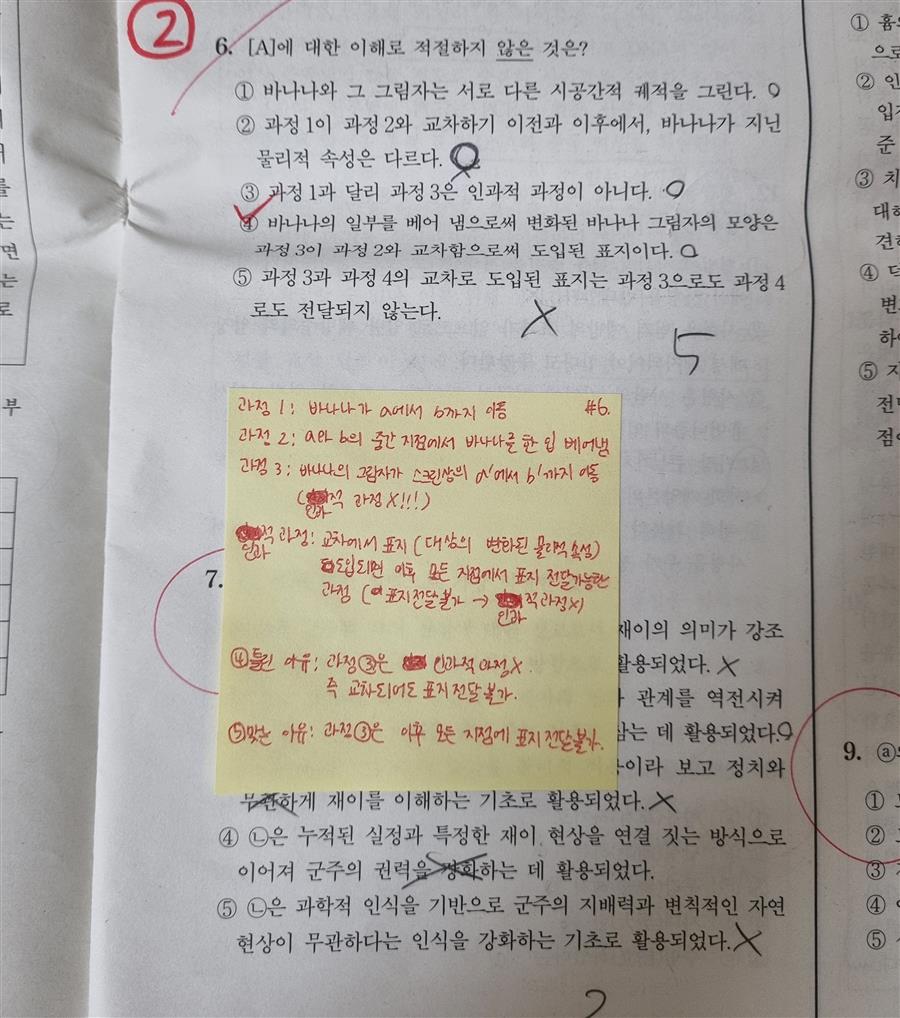 ②
6. [A]에 대한 이해로 적절하지 않은 것은?
① 바나나와 그 그림자는 서로 다른 시공간적 궤적을 그린다. O
② 과정 1이 과정 2와 교차하기 이전과 이후에서, 바나나가 지닌
물리적 속성은 다르다. O
③ 과정 1과 달리 과정 3은 인과적 과정이 아니다. O
④ 바나나의 일부를 베어 냄으로써 변화된 바나나 그림자의 모양은
과정 3이 과정 2와 교차함으로써 도입된 표지이다. O
⑤ 과정 3과 과정 4의 교차로 도입된 표지는 과정 3으로도 과정 4
로도 전달되지 않는다. X
5
과정 1: 바나나가 a에서 b까지 이동 #6.
과정 2: a와 b의 중간 지점에서 바나나를 한 입 베어냄
과정 3: 바나나의 그림자가 스크린상의 a'에서 b'까지 이동
(인과적 과정 X!!!)
인과적 과정: 교차에서 표지 (대상의 변화된 물리적 속성)
도입되면 이후 모든 지점에서 표지 전달가능한
과정 (표지전달불가 → 인과적과정X)
④틀린 이유: 과정③은 인과적 과정X
즉 교차되어도 표지전달불가.
⑤맞는 이유: 과정③은 이후 모든 지점에 표지전달불가.
7.
재이의 의미가 강조
활용되었다. X
관계를 역전시켜
삼는 데 활용되었다. O
이라 보고 정치와
무관하게 재이를 이해하는 기초로 활용되었다. X
④ ㉡은 누적된 실정과 특정한 재이 현상을 연결 짓는 방식으로
이어져 군주의 권력을 강화하는 데 활용되었다.
⑤ ㉡은 과학적 인식을 기반으로 군주의 지배력과 변칙적인 자연
현상이 무관하다는 인식을 강화하는 기초로 활용되었다. X
① 흄의
으로
② 인
입지
준
③ 치
대하
견해
④ 더
변
하
⑤ 지
전달
점
9. ⓐ
①
②
③
④
⑤